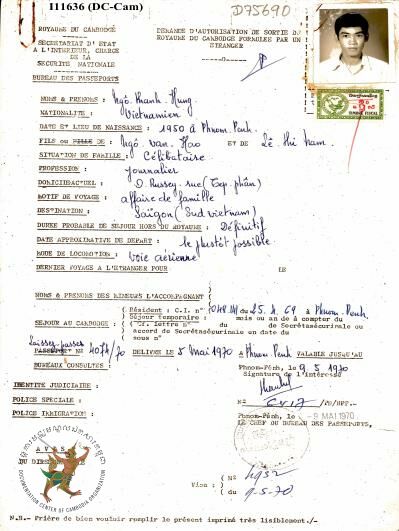 I11636 (DC-Cam)
D75690
ROYAUME DU CAMBODGE
SECRETARIAT D'ETAT
A L'INTERIEUR, CHARGE
DE LA
SECURITE NATIONALE
BUREAU DES PASSEPORTS
DEMANDE D'AUTORISATION DE SORTIE DU
ROYAUME DU CAMBODGE FORMULEE PAR UN
ETRANGER
NOMS & PRENOMS : Ngô Thanh Hung
NATIONALITE : Vietnamien
DATE ET LIEU DE NAISSANCE : 1950 à Phnom Penh.
FILS ou FILLE DE : Ngô Van Hao ET DE Lê thi Nam.
SITUATION DE FAMILLE : Célibataire
PROFESSION : journalier
DOMICILE ACTUEL : O. Russey. rue (Tep. phân)
MOTIF DE VOYAGE : affaire de famille
DESTINATION : Saïgon (Sud vietnam)
DUREE PROBABLE DE SEJOUR HORS DU ROYAUME : Définitif
DATE APPROXIMATIVE DE DEPART : le plustôt possible
MODE DE LOCOMOTION : Voie aérienne
DERNIER VOYAGE A L'ETRANGER POUR LE
NOMS & PRENOMS DES MINEURS L'ACCOMPAGNANT
SEJOUR AU CAMBODGE :
( Résident : C.I. n° du 25.4.69 à Phnom Penh
( Séjour temporaire : mois ou an de à compter du
( Cf. lettre n° du de Secrétasériat ou
( accord de Secrétasériat en date du
( sous n°
Laissez-passer
PASSEPORT N° 4074/70 DELIVRE LE 5 mai 1970 à Phnom Penh VALABLE JUSQU'AU
BUREAUX CONSULTES :
Phnom-Penh le 9.5 1970
Signature de l'intéressé
IDENTITE JUDICIAIRE :
POLICE SPECIALE :
POLICE IMMIGRATION :
N° /DP/BPP.
Phnom-Penh, le 9 MAI 1970
LE CHEF DU BUREAU DES PASSEPORTS,
AVIS
DU DIRECTEUR
DOCUMENTATION CENTER OF CAMBODIA ORGANIZATION
Visa : ( N° 4952
( du 9-5-70
N.B.- Prière de bien vouloir remplir le présent imprimé très lisiblement./-